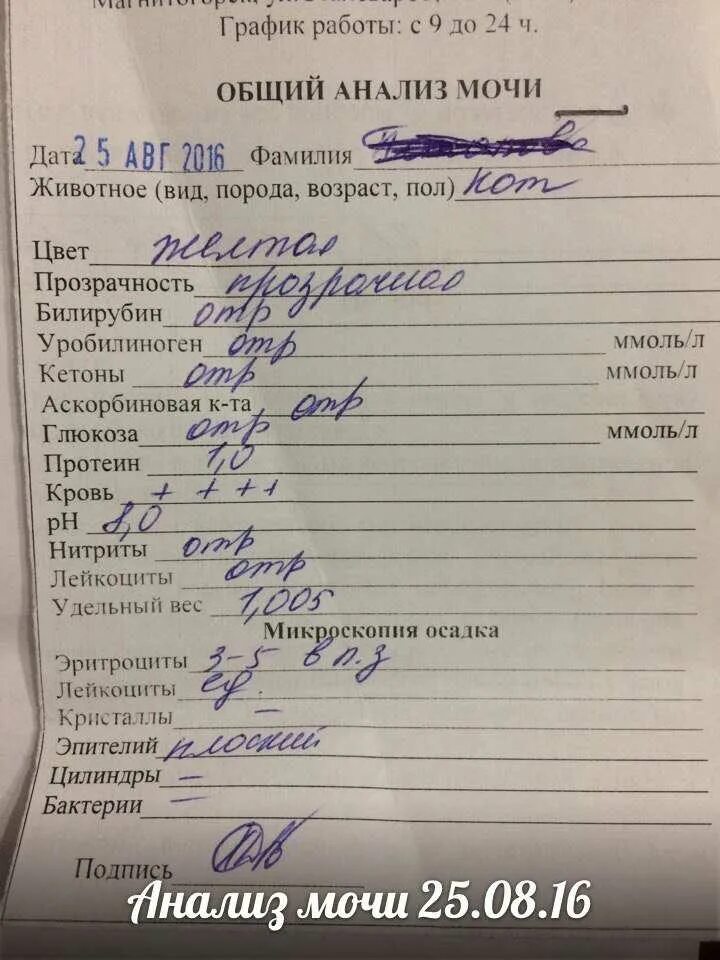 График работы: с 9 до 24 ч.
ОБЩИЙ АНАЛИЗ МОЧИ
Дата 25 АВГ 2016 Фамилия
Животное (вид, порода, возраст, пол) Кот
Цвет желтая
Прозрачность прозрачная
Билирубин отр
Уробилиноген отр ммоль/л
Кетоны отр ммоль/л
Аскорбиновая к-та отр
Глюкоза отр ммоль/л
Протеин 1,0
Кровь + + + +
pH 8,0
Нитриты отр
Лейкоциты отр
Удельный вес 1,005
Микроскопия осадка
Эритроциты 3-5 в п.з
Лейкоциты ед.
Кристаллы –
Эпителий плоский
Цилиндры –
Бактерии –
Подпись
Анализ мочи 25.08.16